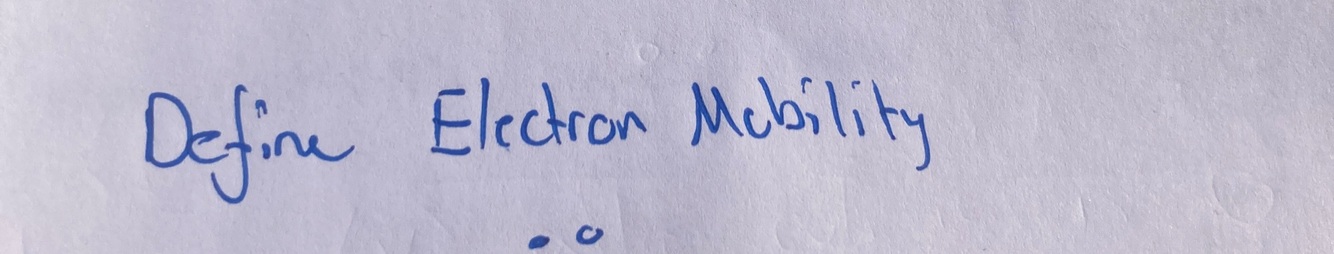 Define Electron Mobility